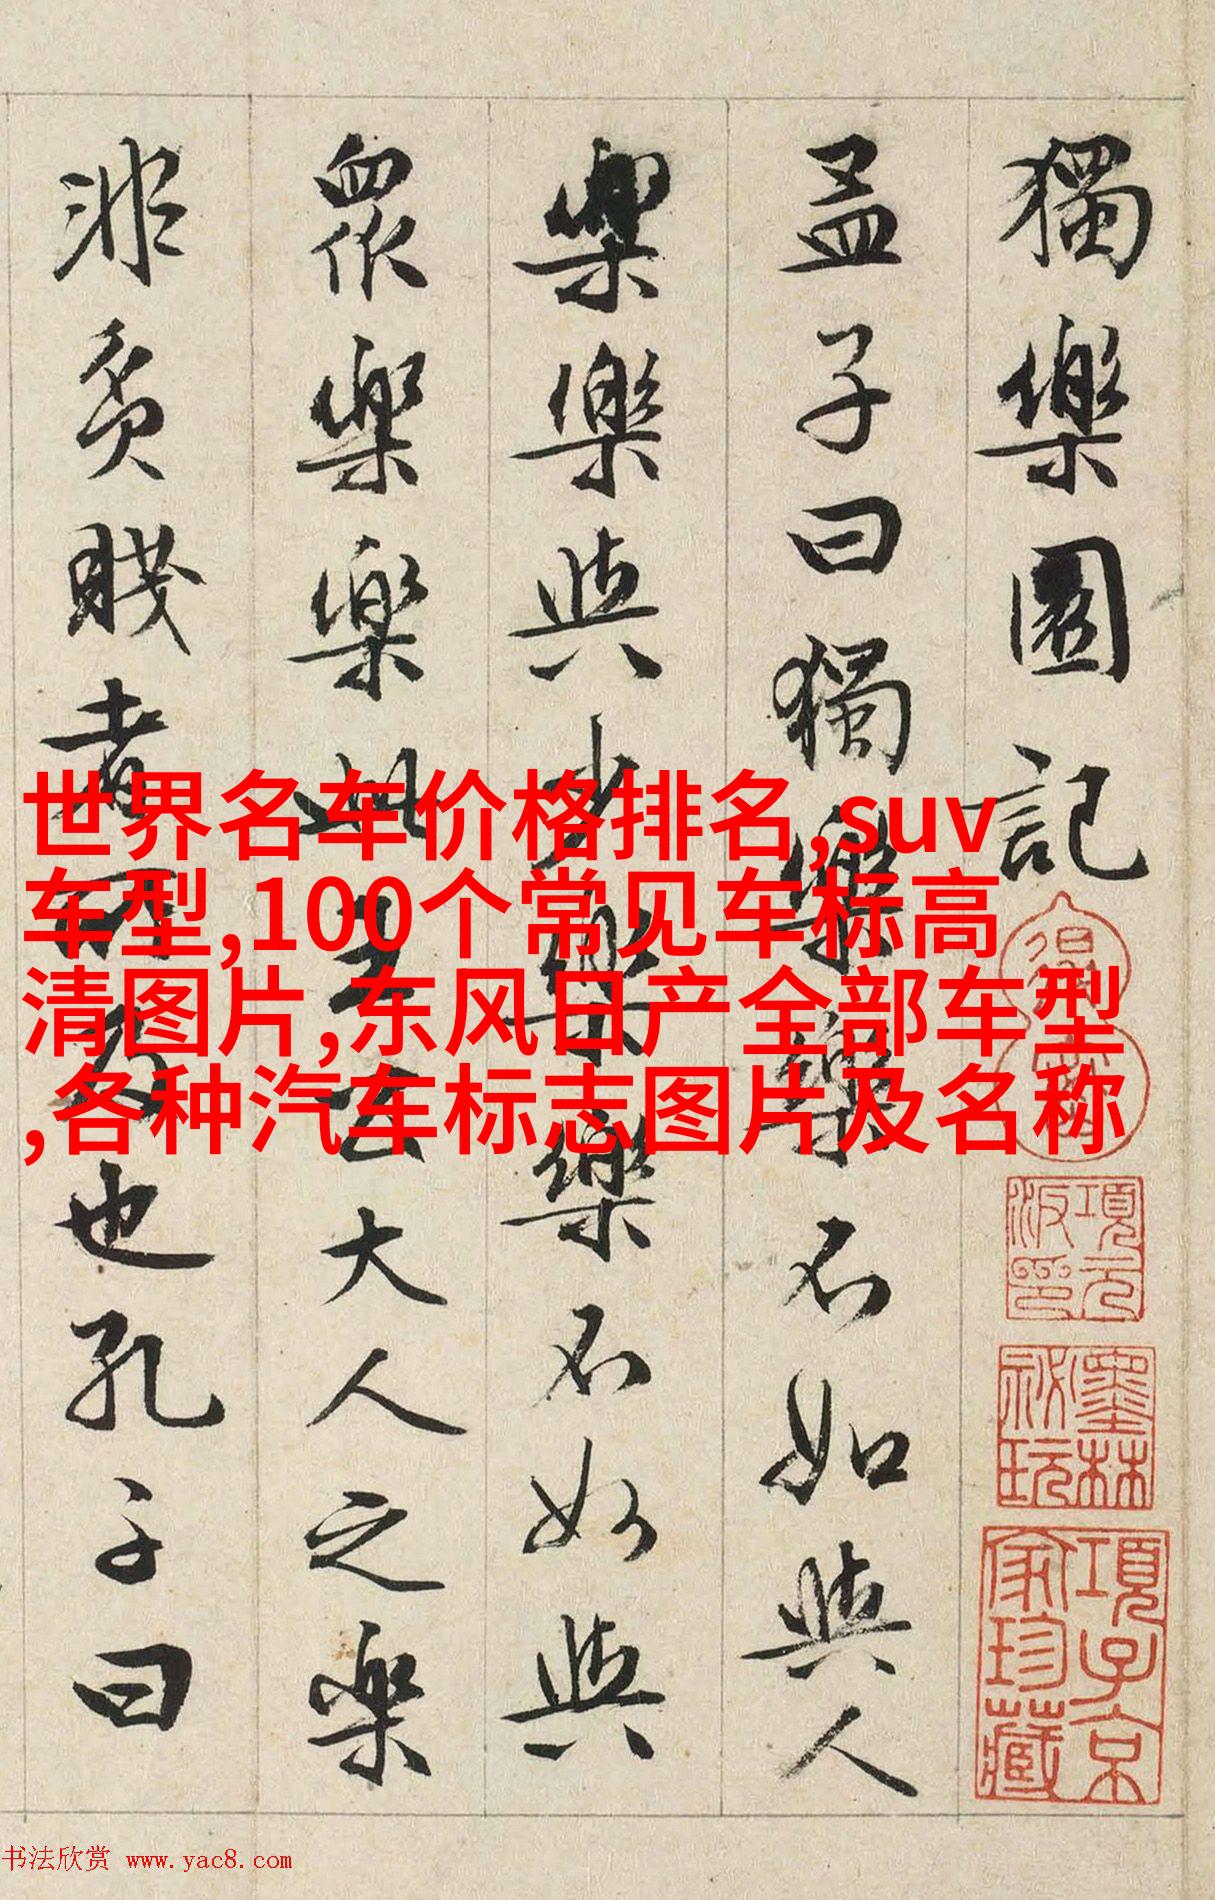 獨樂園記
孟子曰獨樂樂不如與人
樂樂與少樂樂不如與
眾樂樂此王公大人之樂
非貧賤者所及也孔子曰
世界名车价格排名,suv
车型,100个常见车标高
清图片,东风日产全部车型
,各种汽车标志图片及名称
項元汴印
墨林祕玩
項子京家珍藏
书法欣赏 www.yac8.com